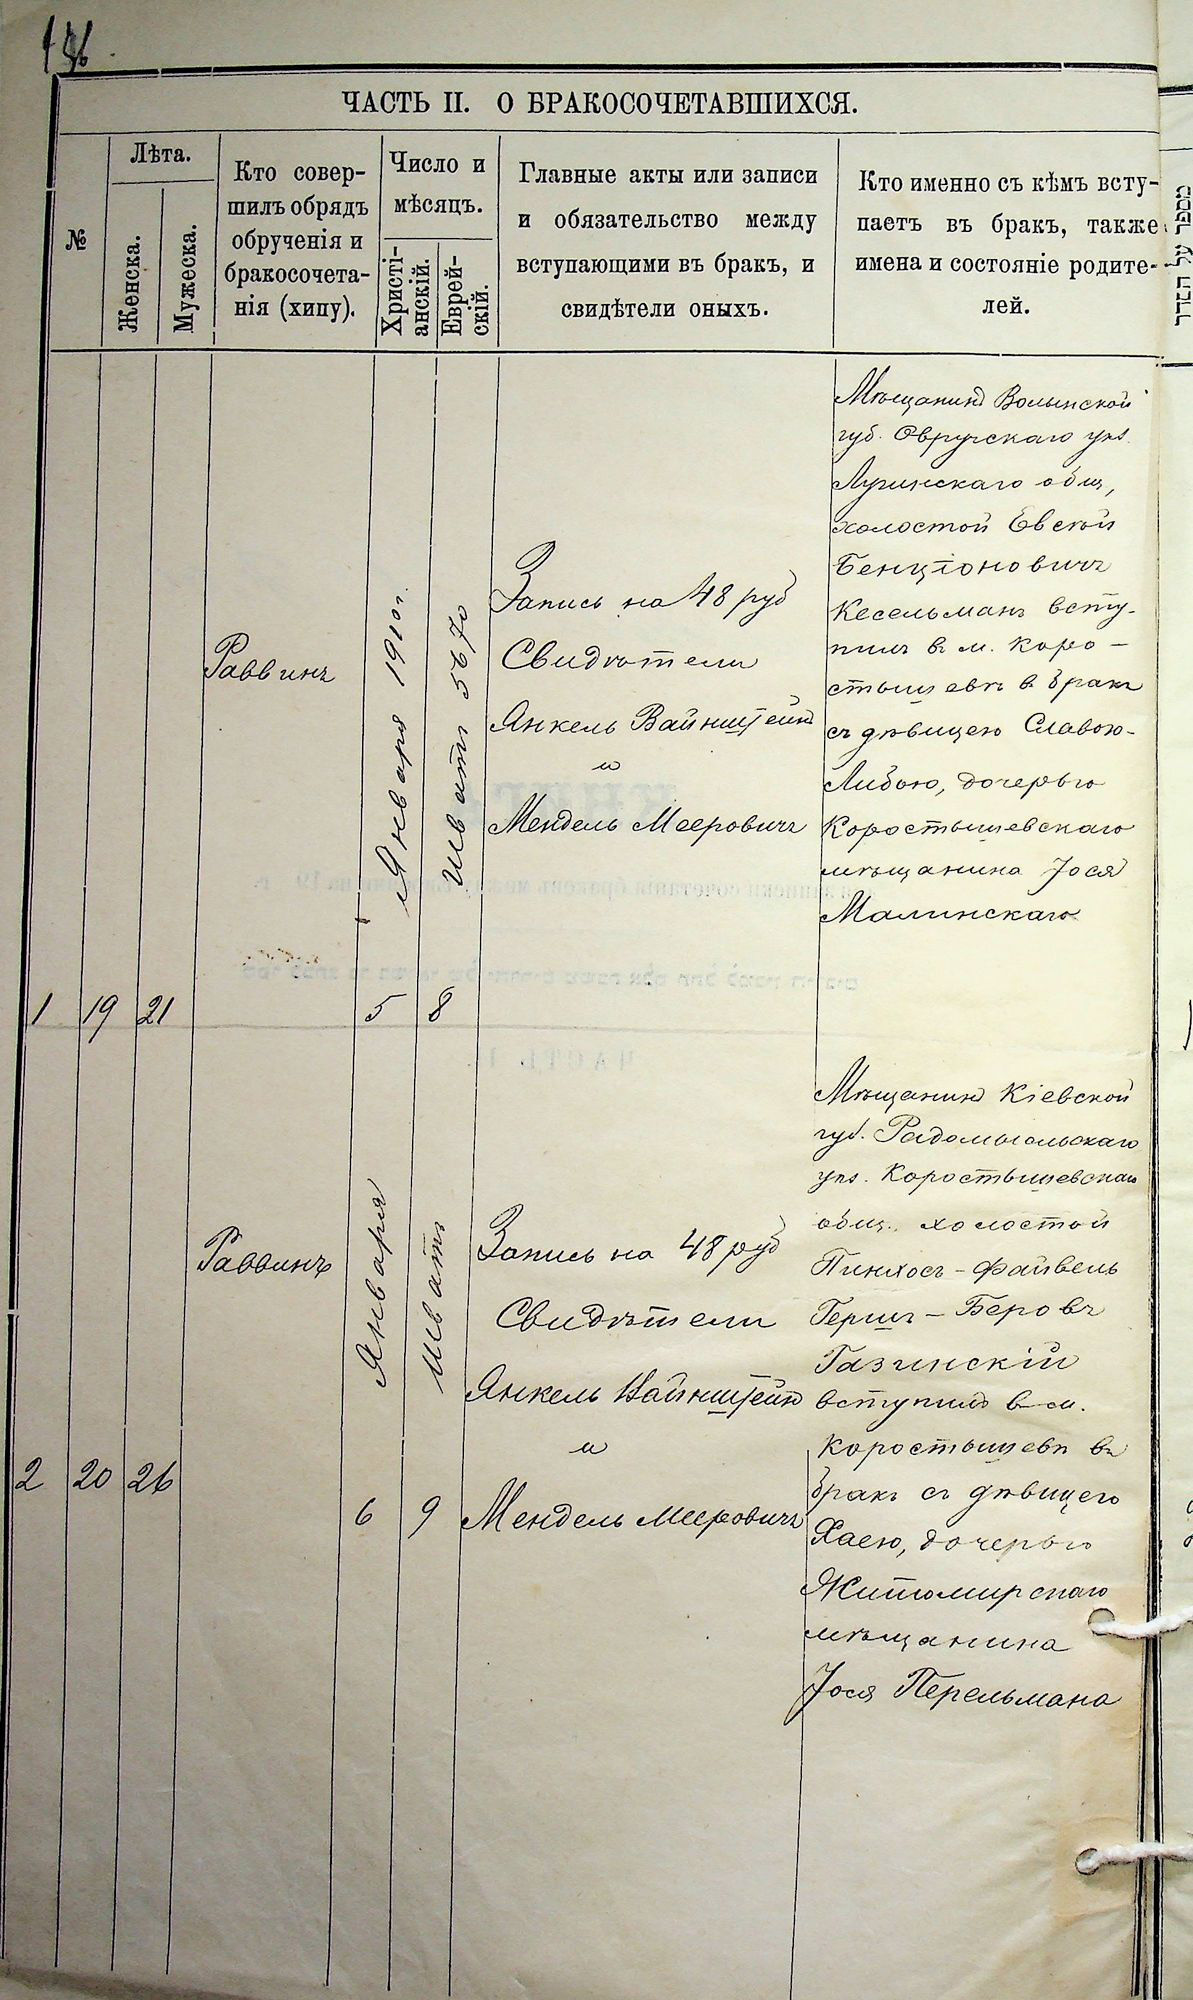 ЧАСТЬ II. О БРАКОСОЧЕТАВШИХСЯ.
№
Лѣта.
Женска.
Мужеска.
Кто совер-
шилъ обрядъ
обрученія и
бракосочета-
нія (хипу).
Число и
мѣсяцъ.
Христі-
анскій.
Еврей-
скій.
Главные акты или записи
и обязательство между
вступающими въ бракъ, и
свидѣтели оныхъ.
Кто именно съ кѣмъ всту-
паетъ въ бракъ, также
имена и состояніе родите-
лей.
1
19
21
Раввинъ
Января 1910 г.
5
Шватъ 5670
8
Запись на 48 руб
Свидѣтели
Янкель Вайнштейнъ
и
Мендель Мееровичъ
Мѣщанинъ Волынской
губ. Овручскаго уѣз.
Лугинскаго общ,
холостой Евсей
Бенціоновичъ
Кесельманъ всту-
пилъ в м. Коро-
стышевѣ в бракъ
съ дѣвицею Славою-
Либою, дочерью
Коростышевскаго
мѣщанина Іося
Малинскаго
2
20
26
Раввинъ
Января
6
Шватъ
9
Запись на 48 руб
Свидѣтели
Янкель Вайнштейнъ
и
Мендель Мееровичъ
Мѣщанинъ Кіевской
губ. Радомысльскаго
уѣз. Коростышевскаго
общ. холостой
Пинхосъ-Файвель
Гершъ-Беровъ
Газинскій
вступилъ в м.
Коростышевѣ въ
бракъ съ дѣвицею
Хаею, дочерью
Житомирскаго
мѣщанина
Іося Перельмана